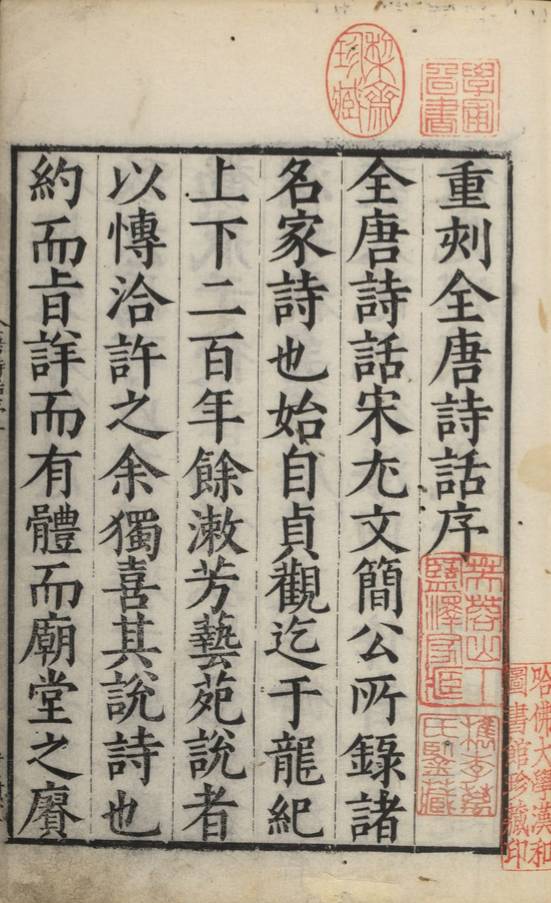 重刻全唐詩話序
全唐詩話宋尤文簡公所錄諸
名家詩也始自貞觀迄于龍紀
上下二百年餘漱芳藝苑說者
以博洽許之余獨喜其說詩也
約而旨詳而有體而廟堂之賡
哈佛大學漢和
圖書館珍藏印